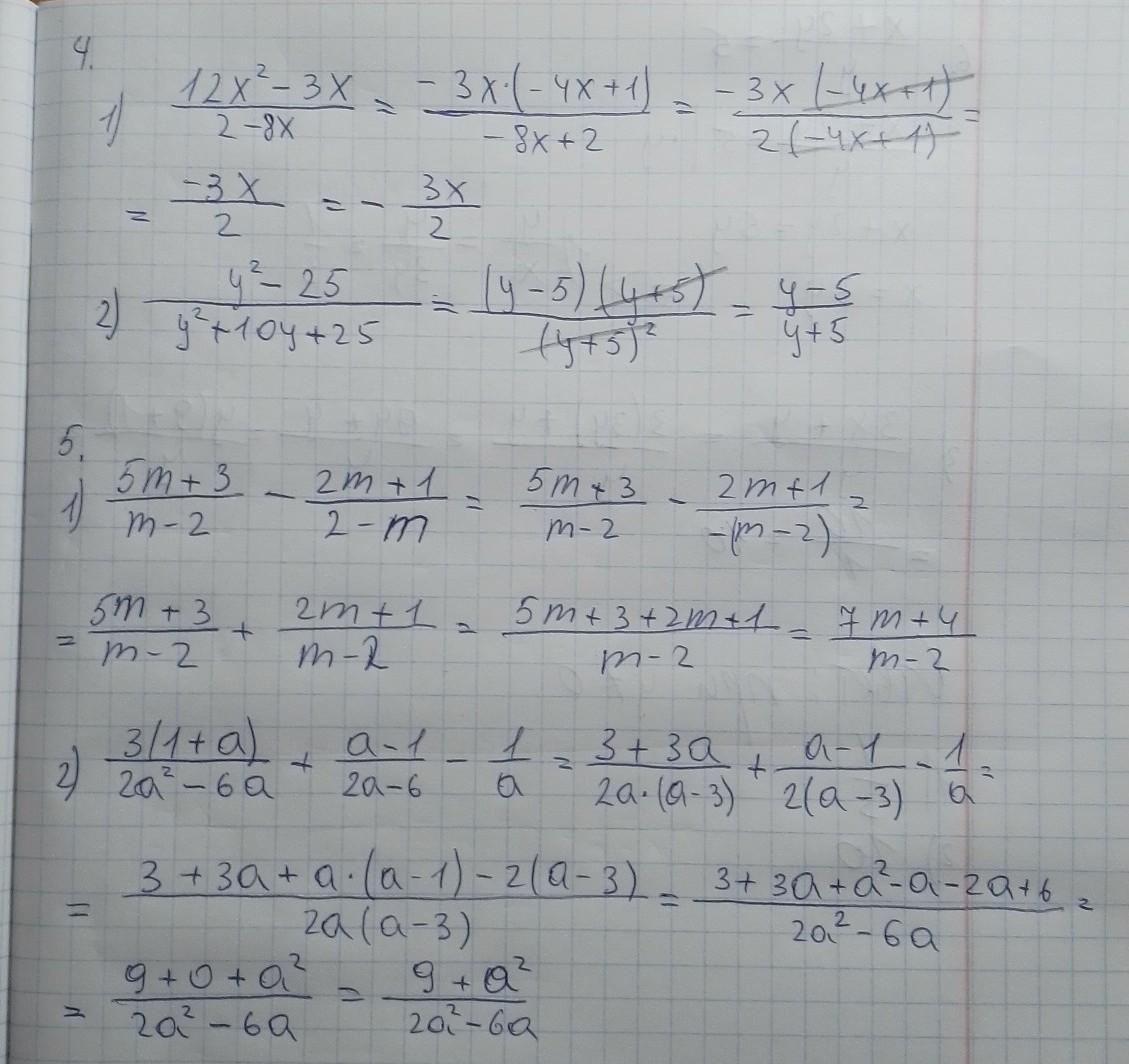 4.
1) \frac{12x^2 - 3x}{2 - 8x} = \frac{-3x \cdot (-4x+1)}{-8x+2} = \frac{-3x (-4x+1)}{2(-4x+1)} =
= \frac{-3x}{2} = -\frac{3x}{2}
2) \frac{y^2 - 25}{y^2 + 10y + 25} = \frac{(y-5)(y+5)}{(y+5)^2} = \frac{y-5}{y+5}
5.
1) \frac{5m+3}{m-2} - \frac{2m+1}{2-m} = \frac{5m+3}{m-2} - \frac{2m+1}{-(m-2)} =
= \frac{5m+3}{m-2} + \frac{2m+1}{m-2} = \frac{5m+3+2m+1}{m-2} = \frac{7m+4}{m-2}
2) \frac{3(1+a)}{2a^2-6a} + \frac{a-1}{2a-6} - \frac{1}{a} = \frac{3+3a}{2a \cdot (a-3)} + \frac{a-1}{2(a-3)} - \frac{1}{a} =
= \frac{3+3a+a \cdot (a-1) - 2(a-3)}{2a(a-3)} = \frac{3+3a+a^2-a-2a+6}{2a^2-6a} =
= \frac{9+0+a^2}{2a^2-6a} = \frac{9+a^2}{2a^2-6a}